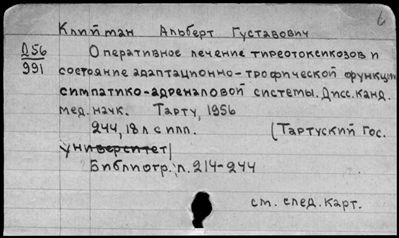 6
Клийман Альберт Густавович
Д56
991
Оперативное лечение тиреотоксикозов и
состояние адаптационно-трофической функции
симпатико-адреналовой системы. Дисс. канд.
мед. наук. Тарту, 1956
244, 18 л с илл. (Тартуский Гос.
университет)
Библиогр. л. 214-244
см. след. карт.